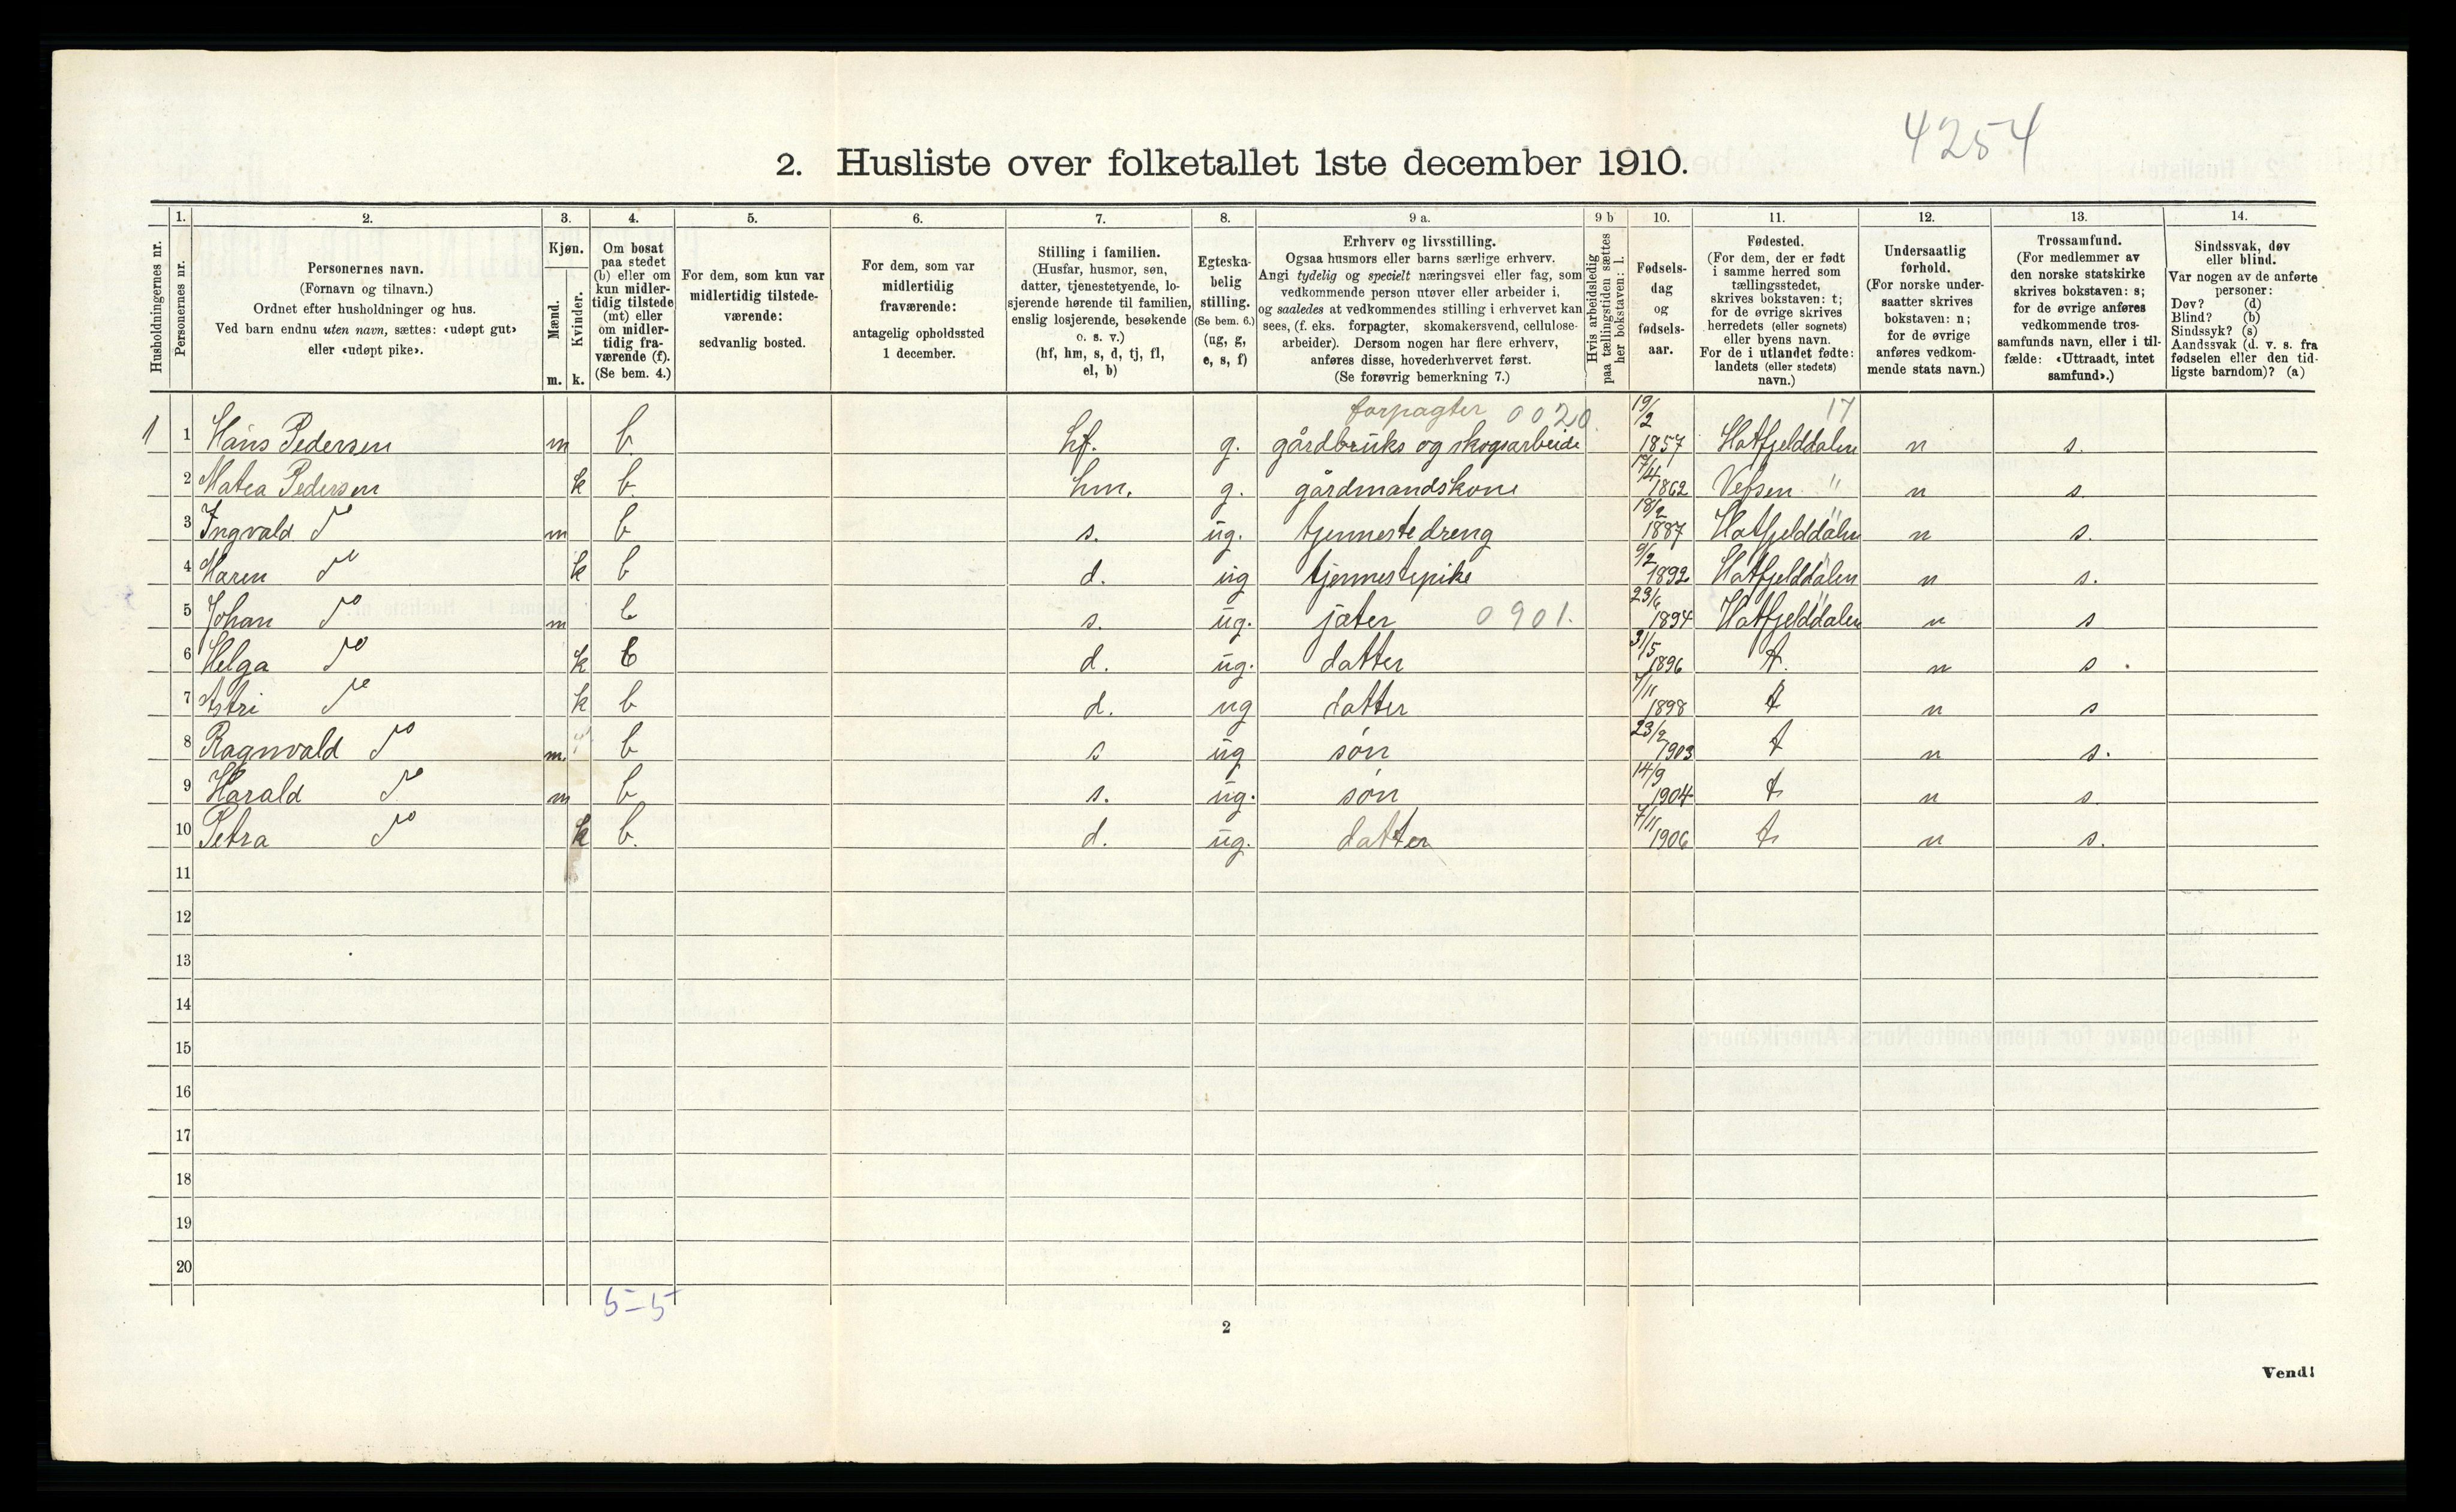 4254
2. Husliste over folketallet 1ste december 1910.
Husholdningernes nr.
1.
Personernes nr.
2.
Personernes navn.
(Fornavn og tilnavn.)
Ordnet efter husholdninger og hus.
Ved barn endnu uten navn, sættes: «udøpt gut»
eller «udøpt pike».
3.
Kjøn.
Mænd.
Kvinder.
m. k.
4.
Om bosat
paa stedet
(b) eller om
kun midler-
tidig tilstede
(mt) eller
om midler-
tidig fra-
værende (f).
(Se bem. 4.)
5.
For dem, som kun var
midlertidig tilstede-
værende:
sedvanlig bosted.
6.
For dem, som var
midlertidig
fraværende:
antagelig opholdssted
1 december.
7.
Stilling i familien.
(Husfar, husmor, søn,
datter, tjenestetyende, lo-
sjerende hørende til familien,
enslig losjerende, besøkende
o. s. v.)
(hf, hm, s, d, tj, fl,
el, b)
8.
Egteska-
belig
stilling.
(Se bem. 6.)
(ug, g,
e, s, f)
9 a.
Erhverv og livsstilling.
Ogsaa husmors eller barns særlige erhverv.
Angi tydelig og specielt næringsvei eller fag, som
vedkommende person utøver eller arbeider i,
og saaledes at vedkommendes stilling i erhvervet kan
sees, (f. eks. forpagter, skomakersvend, cellulose-
arbeider). Dersom nogen har flere erhverv,
anføres disse, hovederhvervet først.
(Se forøvrig bemerkning 7.)
9 b
Hvis arbeidsledig
paa tællingstiden sættes
her bokstaven: l.
10.
Fødsels-
dag
og
fødsels-
aar.
11.
Fødested.
(For dem, der er født
i samme herred som
tællingsstedet,
skrives bokstaven: t;
for de øvrige skrives
herredets (eller sognets)
eller byens navn.
For de i utlandet fødte:
landets (eller stedets)
navn.)
12.
Undersaatlig
forhold.
(For norske under-
saatter skrives
bokstaven: n;
for de øvrige
anføres vedkom-
mende stats navn.)
13.
Trossamfund.
(For medlemmer av
den norske statskirke
skrives bokstaven: s;
for de øvrige anføres
vedkommende tros-
samfunds navn, eller i til-
fælde: «Uttraadt, intet
samfund».)
14.
Sindssvak, døv
eller blind.
Var nogen av de anførte
personer:
Døv? (d)
Blind? (b)
Sindssyk? (s)
Aandssvak (d. v. s. fra
fødselen eller den tid-
ligste barndom)? (a)
forpagter 0020. 19/2 17
1 1 Hans Pedersen m b. hf. g. gårdbruks og skogsarbeide 1857 Hatfjelddalen n s.
2 Matea Pedersen k b. hm. g. gårdmandskone 17/4 1862 Vefsen " n s.
3 Ingvald do m b s. ug. tjenneste dreng 18/2 1887 Hatfjelddalen " n s.
4 Maren do k b d. ug tjennestepike 9/2 1892 Hatfjelddalen " n s.
5 Johan do m b s. ug. jæter 0901. 23/6 1894 Hatfjelddalen " n s
6 Helga do k b d. ug. datter 31/5 1896 t. n s.
7 Astri do k b d. ug datter 7/11 1898 t n s
8 Ragnvald do m. b s ug søn 23/2 1903 t n s.
9 Harald do m b s. ug. søn 14/9 1904 t n s.
10 Petra do k b. d. ug. datter 7/11 1906 t n s.
11
12
13
14
15
16
17
18
19
20
5-5
2
Vend!